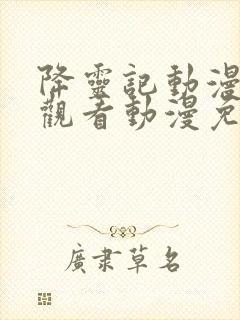 降靈記動漫
觀看動漫免
廣肅草名